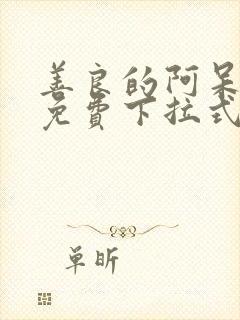 善良的阿呆
免费下拉式
单昕